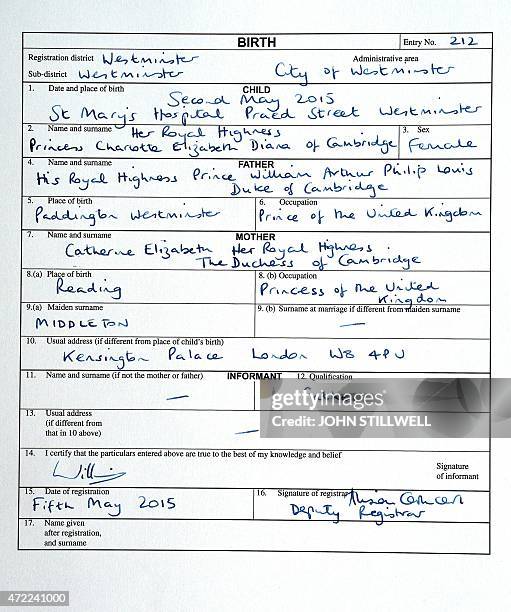 BIRTH Entry No. 212
Registration district Westminster Administrative area
Sub-district Westminster City of Westminster
1. Date and place of birth CHILD
Second May 2015
St Mary's Hospital Praed Street Westminster
2. Name and surname Her Royal Highness 3. Sex
Princess Charlotte Elizabeth Diana of Cambridge Female
4. Name and surname FATHER
His Royal Highness Prince William Arthur Philip Louis
Duke of Cambridge
5. Place of birth 6. Occupation
Paddington Westminster Prince of the United Kingdom
7. Name and surname MOTHER
Catherine Elizabeth Her Royal Highness
The Duchess of Cambridge
8.(a) Place of birth 8. (b) Occupation
Reading Princess of the United
Kingdom
9.(a) Maiden surname 9. (b) Surname at marriage if different from maiden surname
MIDDLETON —
10. Usual address (if different from place of child's birth)
Kensington Palace London W8 4PU
11. Name and surname (if not the mother or father) INFORMANT 12. Qualification
—
gettyimages®
Credit: JOHN STILLWELL
13. Usual address
(if different from
that in 10 above) —
14. I certify that the particulars entered above are true to the best of my knowledge and belief
Signature
of informant
15. Date of registration 16. Signature of registrar
Fifth May 2015 Deputy Registrar
17. Name given
after registration,
and surname
472241000